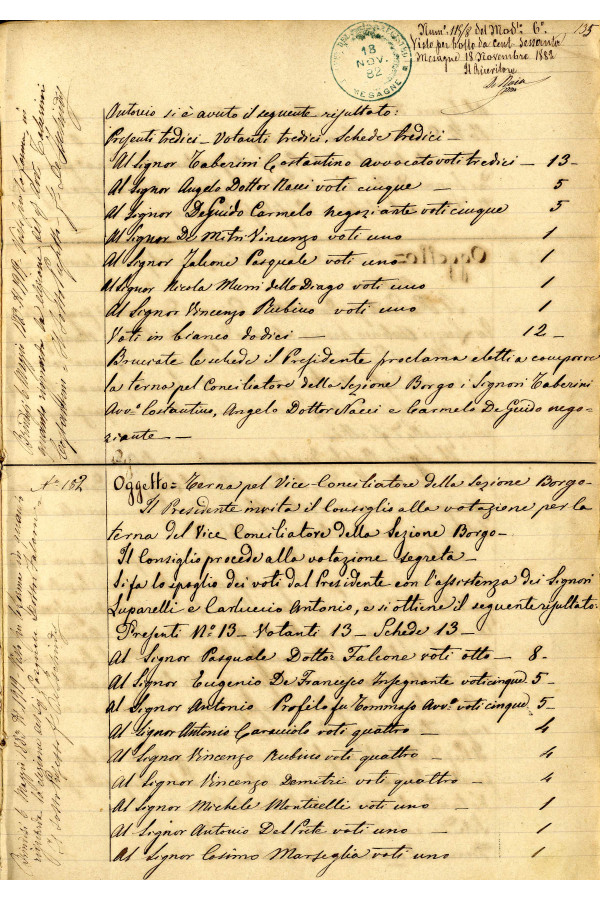 Num.º 118/8 del Mod.º 6º
135
Visto per bollo da cent. sessanta
Mesagne 18 Novembre 1882
Il Ricevitore
18
NOV.
82
MESAGNE
Antonio si è avuto il seguente risultato:
Presenti tredici - Votanti tredici, Schede tredici -
Al Signor Taberini Costantino Avvocato voti tredici - 13 -
Al Signor Angelo Dottor Nacci voti cinque - 5
Al Signor De Guido Carmelo negoziante voti cinque 5
Al Signor De Mitri Vincenzo voti uno - 1
Al Signor Falcone Pasquale voti uno - 1
Al Signor Nicola Murri dello Diago voti uno 1
Al Signor Vincenzo Rubino voti uno 1
Voti in bianco dodici - 12 -
Bruciate le schede il Presidente proclama eletti a comporre
la terna pel Conciliatore della Sezione Borgo i Signori Taberini
Avv. Costantino, Angelo Dottor Nacci e Carmelo De Guido nego-
ziante -
Nº 182
Oggetto = Terna pel Vice-Conciliatore della Sezione Borgo -
Il Presidente invita il Consiglio alla votazione per la
terna del Vice Conciliatore della Sezione Borgo -
Il Consiglio procede alla votazione segreta -
Si fa lo spoglio dei voti dal Presidente con l'assistenza dei Signori
Luparelli e Carluccio Antonio, e si ottiene il seguente risultato:
Presenti Nº 13 - Votanti 13 - Schede 13 -
Al Signor Pasquale Dottor Falcone voti otto - 8 -
Al Signor Eugenio De Francesco Insegnante voti cinque 5 -
Al Signor Antonio Profilo fu Tommaso Avv.º voti cinque 5 -
Al Signor Antonio Caraciolo voti quattro - 4
Al Signor Vincenzo Rubino voti quattro - 4
Al Signor Vincenzo Demitri voti quattro - 4
Al Signor Michele Monticelli voti uno 1
Al Signor Antonio Del Prete voti uno - 1
Al Signor Cosimo Marseglia voti uno 1